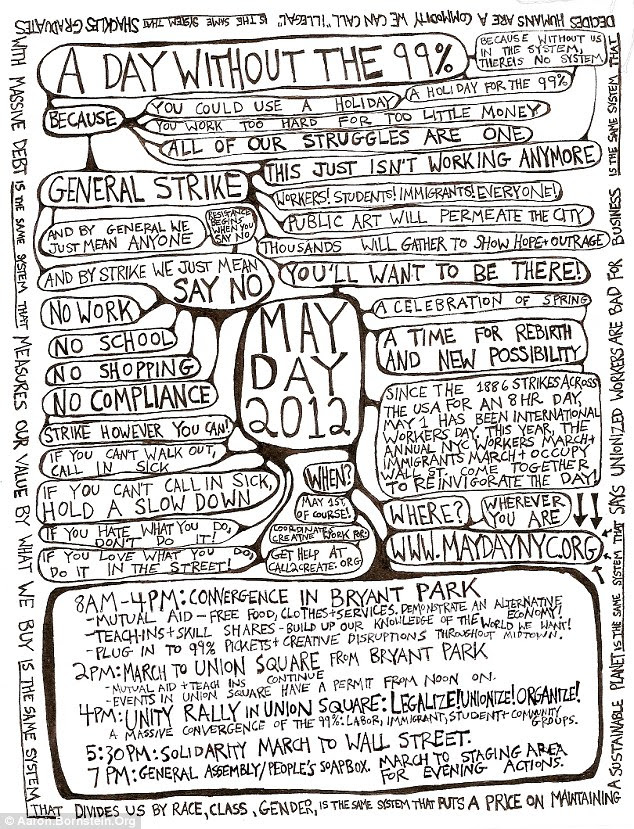 DECIDES HUMANS ARE A COMMODITY WE CAN CALL "ILLEGAL" IS THE SAME SYSTEM THAT SHACKLES GRADUATES
WITH MASSIVE DEBT IS THE SAME SYSTEM THAT MEASURES OUR VALUE BY WHAT WE BUY IS THE SAME SYSTEM
THAT DIVIDES US BY RACE, CLASS, GENDER, IS THE SAME SYSTEM THAT PUTS A PRICE ON MAINTAINING
A SUSTAINABLE PLANET IS THE SAME SYSTEM THAT SAYS UNIONIZED WORKERS ARE BAD FOR BUSINESS IS THE SAME SYSTEM THAT
A DAY WITHOUT THE 99%
BECAUSE WITHOUT US
IN THE SYSTEM,
THERE IS NO SYSTEM
BECAUSE
YOU COULD USE A HOLIDAY
A HOLIDAY FOR THE 99%
YOU WORK TOO HARD FOR TOO LITTLE MONEY
ALL OF OUR STRUGGLES ARE ONE
THIS JUST ISN'T WORKING ANYMORE
GENERAL STRIKE
WORKERS! STUDENTS! IMMIGRANTS! EVERYONE!
AND BY GENERAL WE
JUST MEAN ANYONE
RESISTANCE
BEGINS
WHEN YOU
SAY NO
PUBLIC ART WILL PERMEATE THE CITY
THOUSANDS WILL GATHER TO SHOW HOPE + OUTRAGE
AND BY STRIKE WE JUST MEAN
SAY NO
YOU'LL WANT TO BE THERE!
NO WORK
NO SCHOOL
NO SHOPPING
NO COMPLIANCE
STRIKE HOWEVER YOU CAN!
IF YOU CAN'T WALK OUT,
CALL IN SICK
IF YOU CAN'T CALL IN SICK,
HOLD A SLOW DOWN
IF YOU HATE WHAT YOU DO,
DON'T DO IT!
IF YOU LOVE WHAT YOU DO,
DO IT IN THE STREET!
MAY
DAY
2012
A CELEBRATION OF SPRING
A TIME FOR REBIRTH
AND NEW POSSIBILITY
SINCE THE 1886 STRIKES ACROSS
THE USA FOR AN 8 HR DAY,
MAY 1 HAS BEEN INTERNATIONAL
WORKERS DAY. THIS YEAR, THE
ANNUAL NYC WORKERS MARCH +
IMMIGRANTS MARCH + OCCUPY
WALL ST. COME TOGETHER
TO REINVIGORATE THE DAY!
WHEN?
MAY 1ST,
OF COURSE!
COORDINATES
CREATIVE WORK FOR:
GET HELP AT
CALL2CREATE.ORG
WHERE?
WHEREVER
YOU ARE
WWW.MAYDAYNYC.ORG
8AM-4PM: CONVERGENCE IN BRYANT PARK
-MUTUAL AID - FREE FOOD, CLOTHES + SERVICES. DEMONSTRATE AN ALTERNATIVE
ECONOMY!
-TEACH-INS + SKILL SHARES - BUILD UP OUR KNOWLEDGE OF THE WORLD WE WANT!
- PLUG IN TO 99% PICKETS + CREATIVE DISRUPTIONS THROUGHOUT MIDTOWN.
2PM: MARCH TO UNION SQUARE FROM BRYANT PARK
-MUTUAL AID + TEACH INS CONTINUE
-EVENTS IN UNION SQUARE HAVE A PERMIT FROM NOON ON.
4PM: UNITY RALLY IN UNION SQUARE: LEGALIZE! UNIONIZE! ORGANIZE!
A MASSIVE CONVERGENCE OF THE 99%: LABOR, IMMIGRANT, STUDENT + COMMUNITY
GROUPS.
5:30PM: SOLIDARITY MARCH TO WALL STREET.
7PM: GENERAL ASSEMBLY/PEOPLE'S SOAPBOX. MARCH TO STAGING AREA
FOR EVENING ACTIONS.
© Aaron.Bornstein.Org